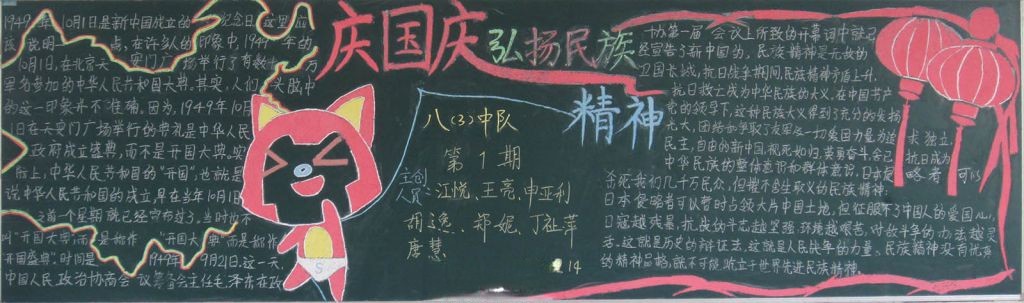 庆国庆 弘扬民族
精神
1949年10月1日是新中国成立的纪念日,这里应
该说明一点,在许多人的印象中,1949年的
10月1日,在北京天安门广场举行了有数十万
军名参加的中华人民共和国大典。其实,人们头脑中
的这一印象并不准确。因为,1949年10月
1日在天安门广场举行的典礼是中华人民
政府成立盛典,而不是开国大典。实
际上,中华人民共和国的“开国”,也就是
说中华人民共和国的成立,早在当年10月1日
之前一个星期就已经宣布过了。当时也不
叫“开国大典”,而是称作
开国盛典”。时间是1949年9月21日。这一天,
中国人民政治协商会议筹备会主任毛泽东在政
八(3)中队
第1期
主创
人员:
江悦、王亮、申亚利
胡逸、郑妮、丁祉萍
唐慧
14
协第一届会议上所致的开幕词中就已
经宣告了新中国的,民族精神是无敌的
卫国长城,抗日战争期间,民族精神奋盾上升,
抗日救亡成为中华民族的大义,在中国共产
党的领导下,这种民族大义得到了充分的发扬
光大,团结和争取了友军及一切爱国力量为追求独立、
民主,自由的新中国,视死如归,英勇奋斗,舍己抗日成为
中华民族的整体意识和群体意识,日本侵略者可以
杀死我们几千万民众,但摧不垮生取义的民族精神;
日本侵略者可以暂时占领大片中国土地,但征服不了中国人的爱国心,
日寇越残暴,抗战的斗志越坚强,环境越艰苦,对敌斗争的办法越灵
活。这就是历史的辩证法,这就是人民战争的力量。民族精神没有优秀
的精神品格,就不可能屹立于世界先进民族精神。